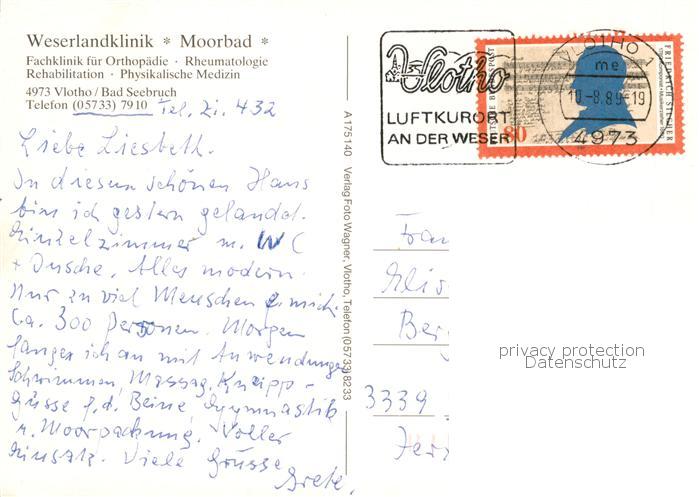 Weserlandklinik * Moorbad *
Fachklinik für Orthopädie · Rheumatologie
Rehabilitation · Physikalische Medizin
4973 Vlotho / Bad Seebruch
Telefon (05733) 7910 Tel. Zi. 432
Liebe Liesbeth.
In diesem schönen Haus
bin ich gestern gelandet.
Einzelzimmer m. WC
+ Dusche. Alles modern.
Nur zu viel Menschen f. mich.
Ca. 300 Personen. Morgen
fange ich an mit Anwendungen
Schwimmen, Massag. Kneipp-
güsse f. d. Beine, Gymnastik
u. Moorpackung. Voller
Einsatz. Viele Grüsse
Grete.
A175140 Verlag Foto Wagner, Vlotho, Telefon (05733) 8233
Vlotho
LUFTKURORT
AN DER WESER
DEUTSCHE BUNDESPOST
80
FRIEDRICH SILCHER
VLOTHO 1
me
10.-8.89-19
4973
Frau
Elis
Ber
3339
privacy protection
Datenschutz